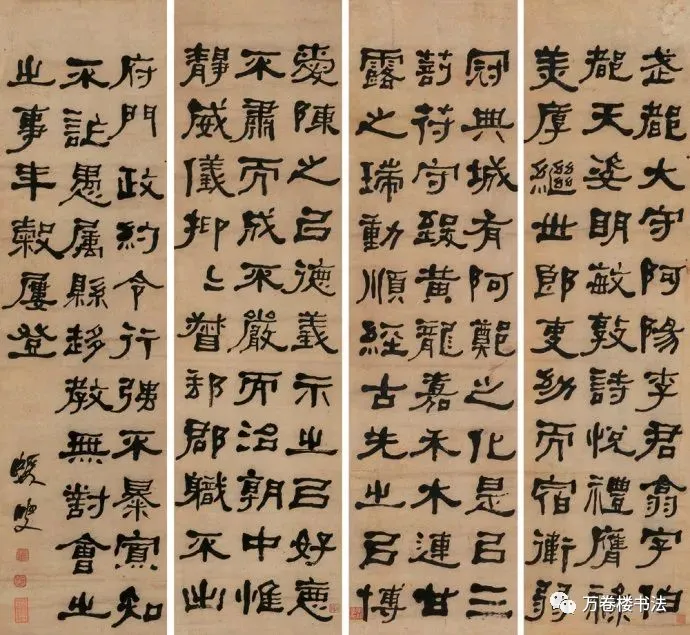 武都大守阿陽李君翕字伯
都天姿明敏敦詩悅禮膺祿
美厚繼世郎吏幼而宿衛弱
冠典城有阿鄭之化是㠯三
剖苻守致黃龍嘉禾木連甘
露之瑞動順經古先之㠯博
愛陳之㠯德義示之㠯好惡
不肅而成不嚴而治朝中惟
靜威儀抑〻督郵郡職不出
府門政約令行強不暴寡知
不詐愚屬縣趍教無對會之
之事年穀屢登
蝯叟
万卷楼书法